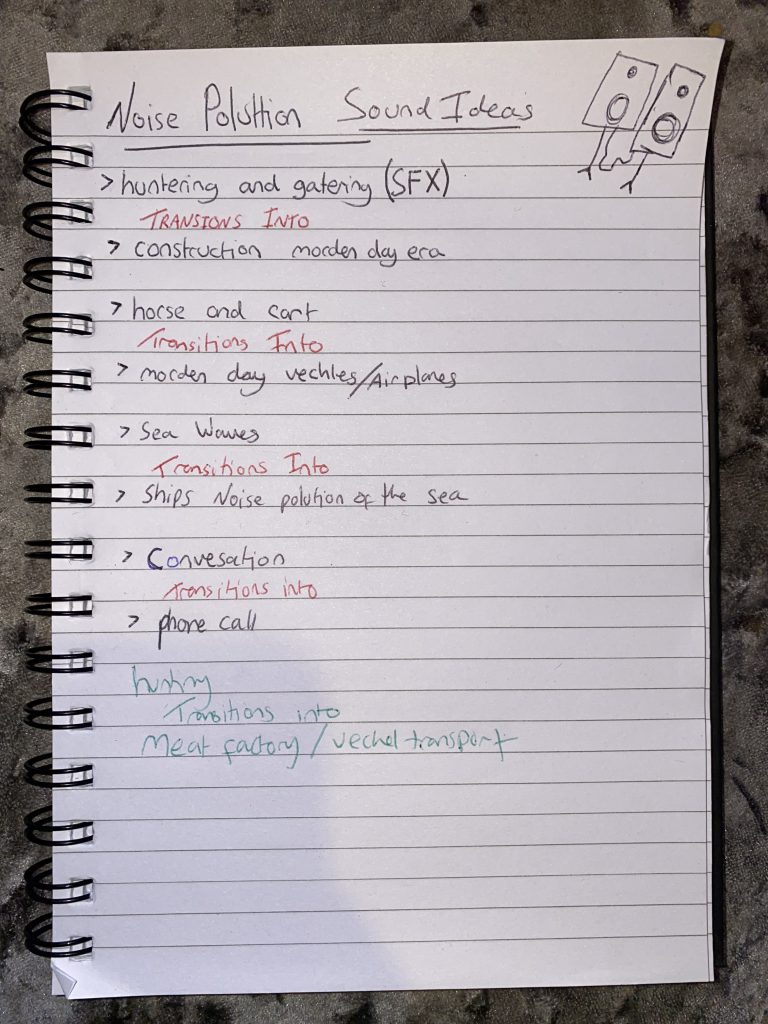 Noise Poluttion Sound Ideas
> huntering and gatering (SFX)
TRANSIONS INTO
> construction morden day era
> horse and cart
Transitions Into
> morden day vechles/Airplanes
> Sea Waves
Transitions Into
> Ships Noise polution of the sea
> Convesation
Transitions into
> phone call
hunting
Transitions into
Meat factory / vechel transport